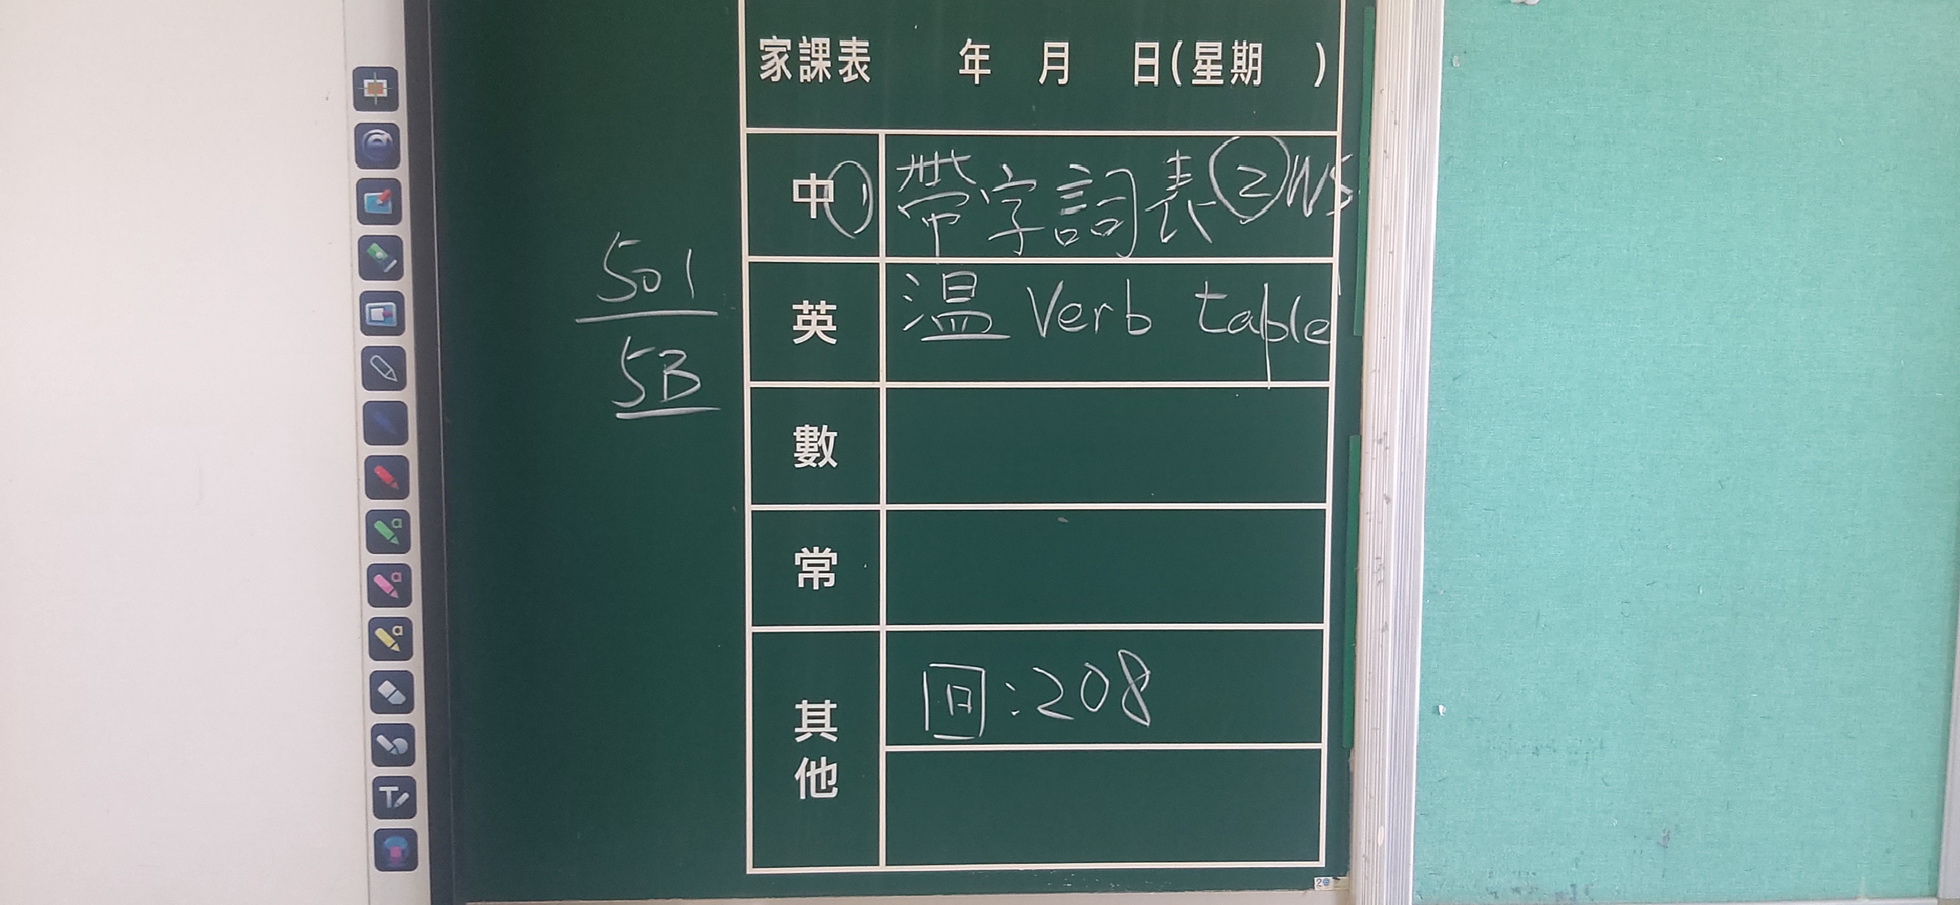 家課表 年 月 日(星期 )
中 ① 帶字詞表 ② WS
英 温 Verb table
501
5B
數
常
其他
回:208